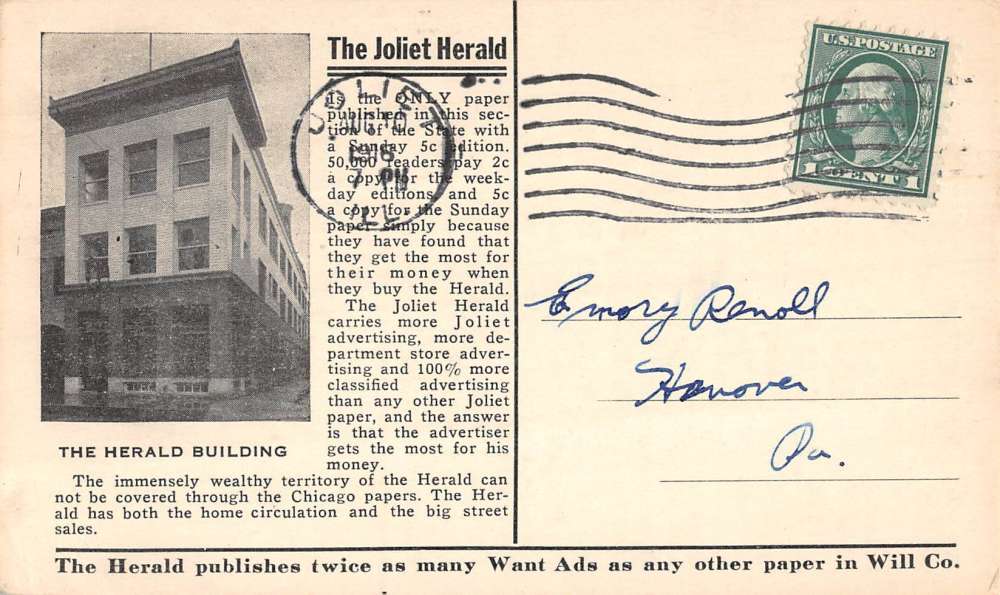 The Joliet Herald
Is the ONLY paper
published in this sec-
tion of the State with
a Sunday 5c edition.
50,000 readers pay 2c
a copy for the week-
day editions and 5c
a copy for the Sunday
paper simply because
they have found that
they get the most for
their money when
they buy the Herald.
The Joliet Herald
carries more Joliet
advertising, more de-
partment store adver-
tising and 100% more
classified advertising
than any other Joliet
paper, and the answer
is that the advertiser
gets the most for his
money.
THE HERALD BUILDING
The immensely wealthy territory of the Herald can
not be covered through the Chicago papers. The Her-
ald has both the home circulation and the big street
sales.
The Herald publishes twice as many Want Ads as any other paper in Will Co.
JOLIET
10
1916
7 PM
ILL.
U.S. POSTAGE
1 CENT 1
Emory Renoll
Hanover
Pa.